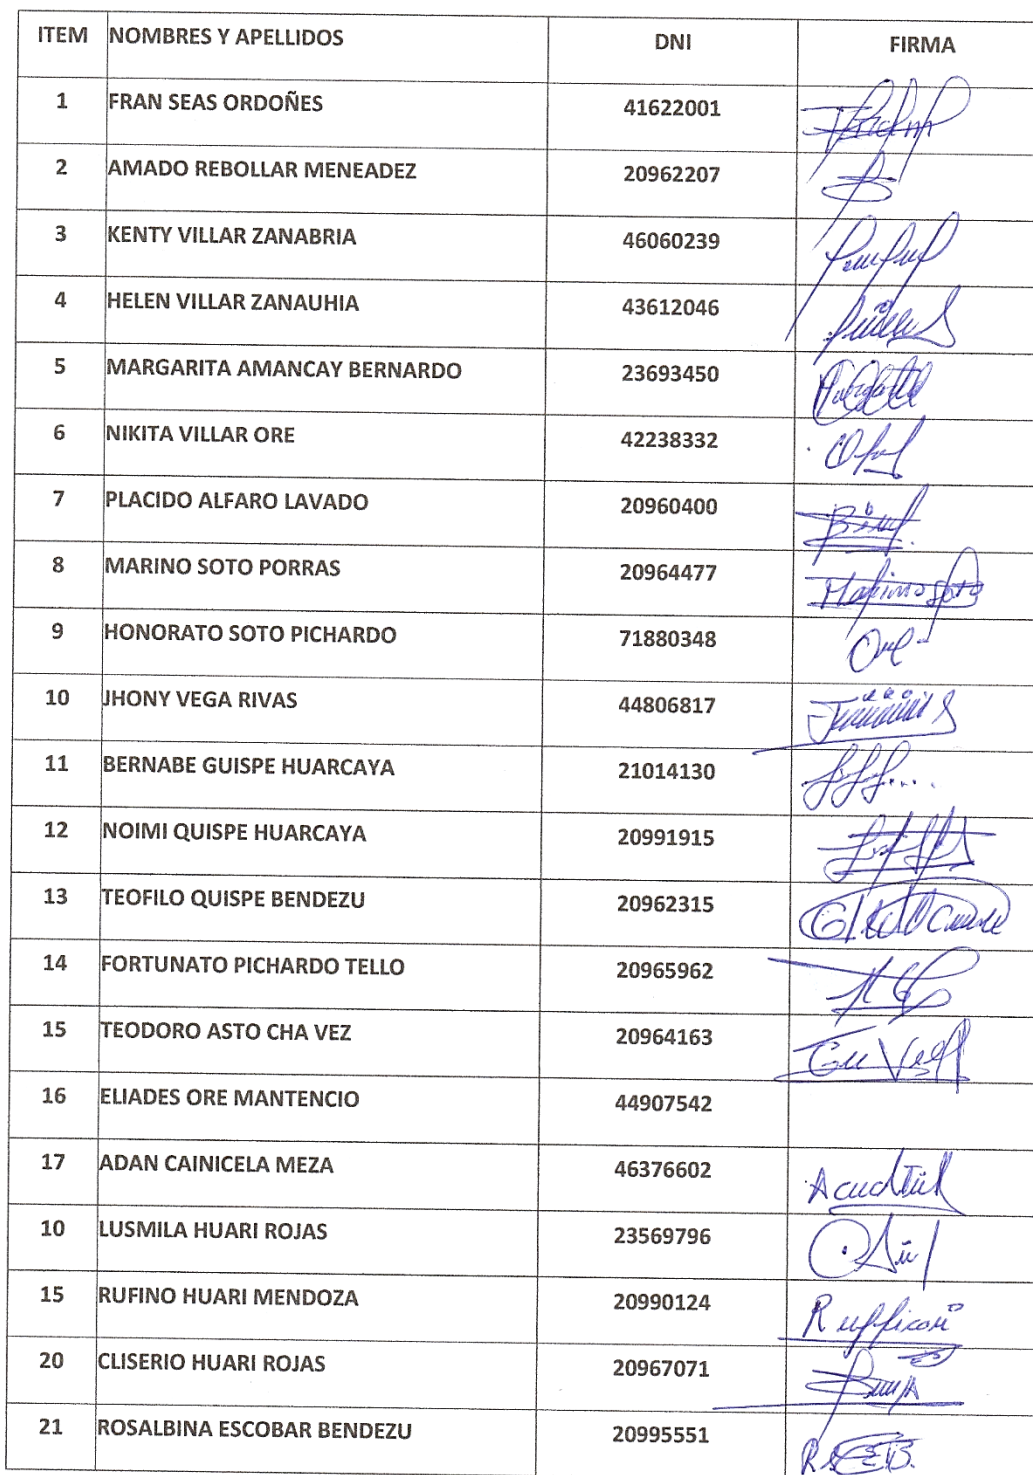 ITEM NOMBRES Y APELLIDOS DNI FIRMA
1 FRAN SEAS ORDOÑES 41622001
2 AMADO REBOLLAR MENEADEZ 20962207
3 KENTY VILLAR ZANABRIA 46060239
4 HELEN VILLAR ZANAUHIA 43612046
5 MARGARITA AMANCAY BERNARDO 23693450
6 NIKITA VILLAR ORE 42238332
7 PLACIDO ALFARO LAVADO 20960400
8 MARINO SOTO PORRAS 20964477
9 HONORATO SOTO PICHARDO 71880348
10 JHONY VEGA RIVAS 44806817
11 BERNABE GUISPE HUARCAYA 21014130
12 NOIMI QUISPE HUARCAYA 20991915
13 TEOFILO QUISPE BENDEZU 20962315
14 FORTUNATO PICHARDO TELLO 20965962
15 TEODORO ASTO CHA VEZ 20964163
16 ELIADES ORE MANTENCIO 44907542
17 ADAN CAINICELA MEZA 46376602
10 LUSMILA HUARI ROJAS 23569796
15 RUFINO HUARI MENDOZA 20990124
20 CLISERIO HUARI ROJAS 20967071
21 ROSALBINA ESCOBAR BENDEZU 20995551